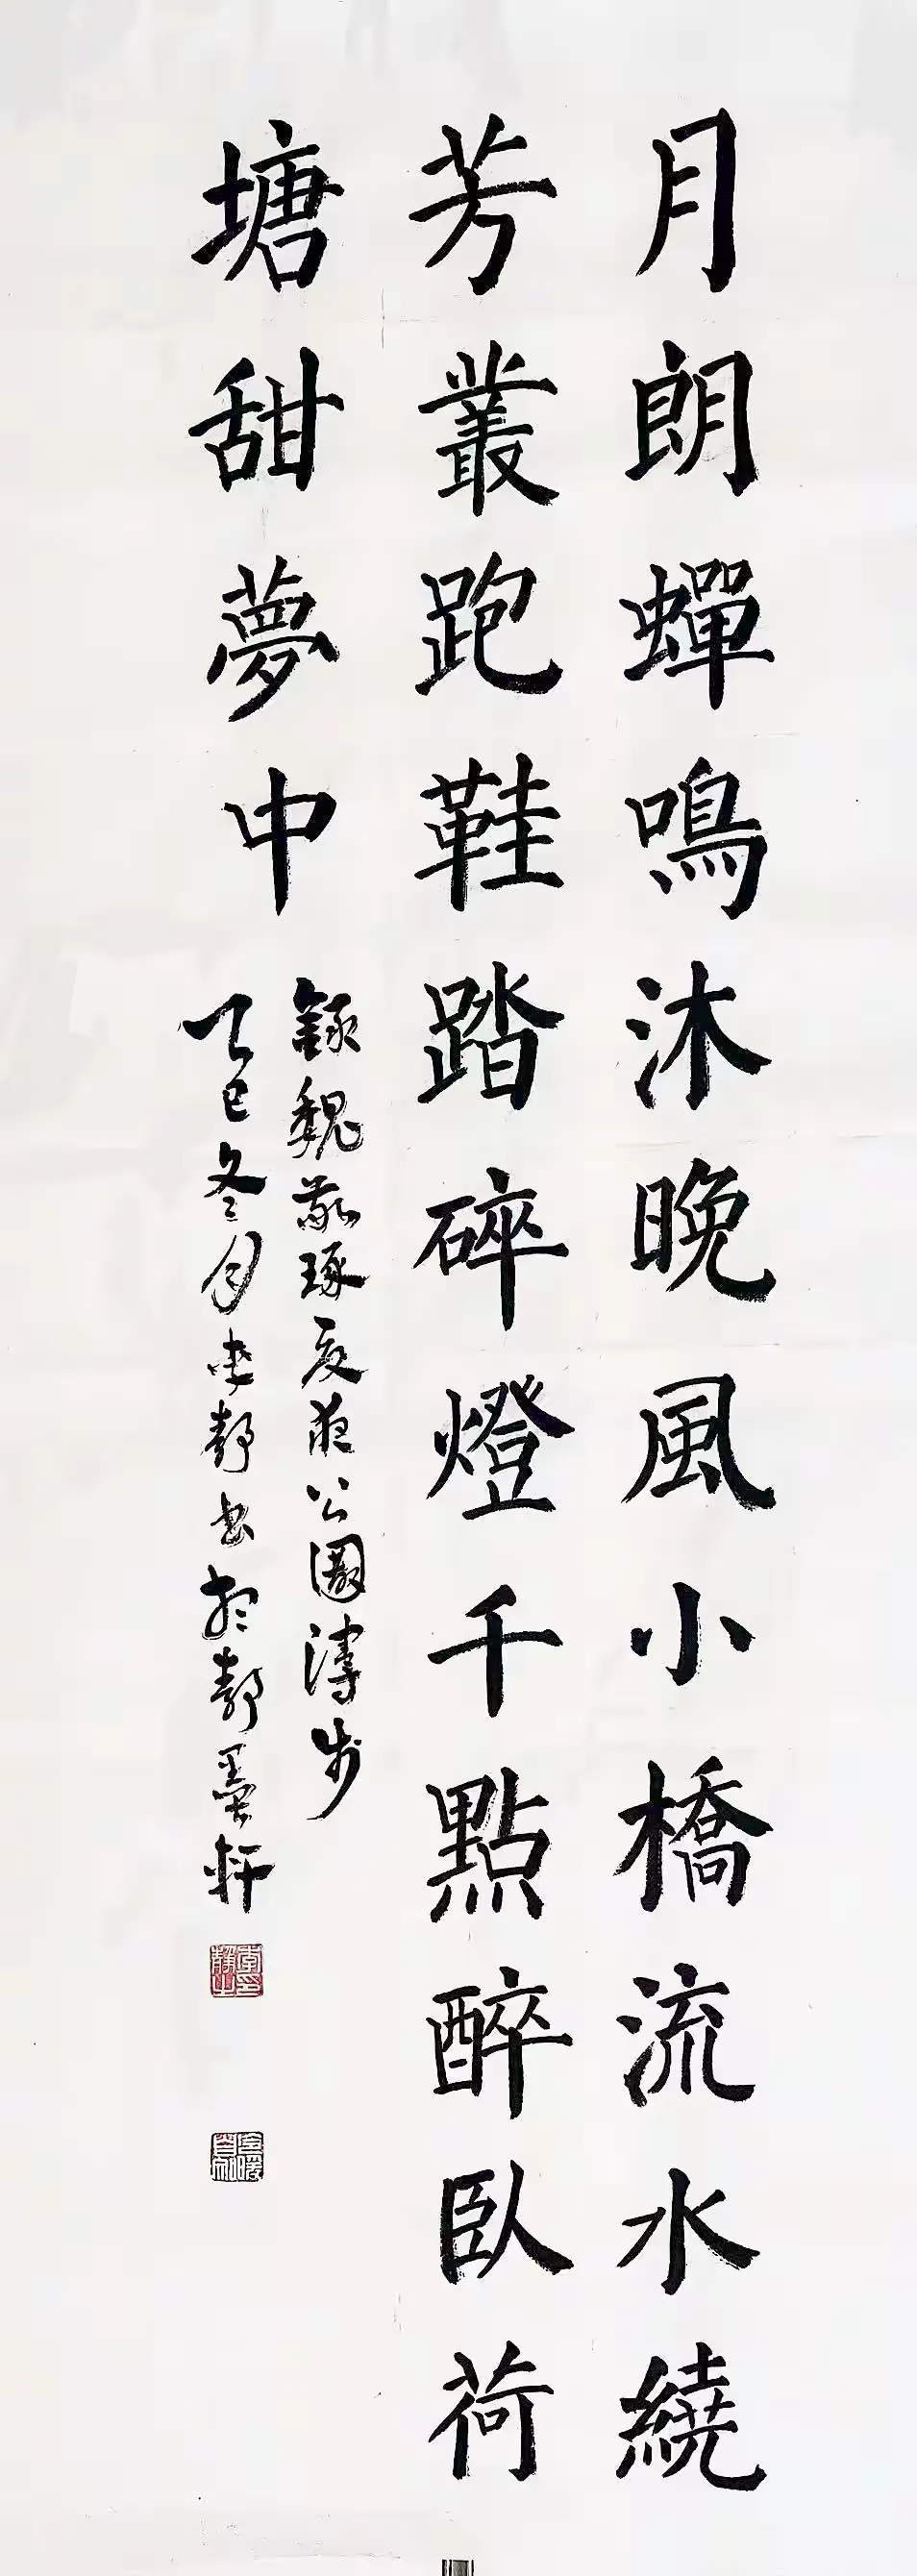 月朗蟬鳴沐晚風小橋流水繞
芳叢跑鞋踏碎燈千點醉臥荷
塘甜夢中
錄魏敬琢夜公園漫步
乙巳冬月李靜書於靜墨軒